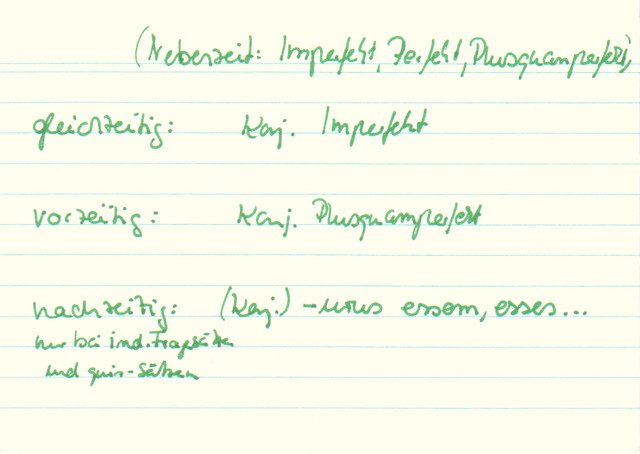 (Nebenzeit: Imperfekt, Perfekt, Plusquamperfekt)
gleichzeitig: Konj. Imperfekt
vorzeitig: Konj. Plusquamperfekt
nachzeitig: (Konj.) -urus essem, esses...
nur bei ind. Fragesätzen
und quin-Sätzen